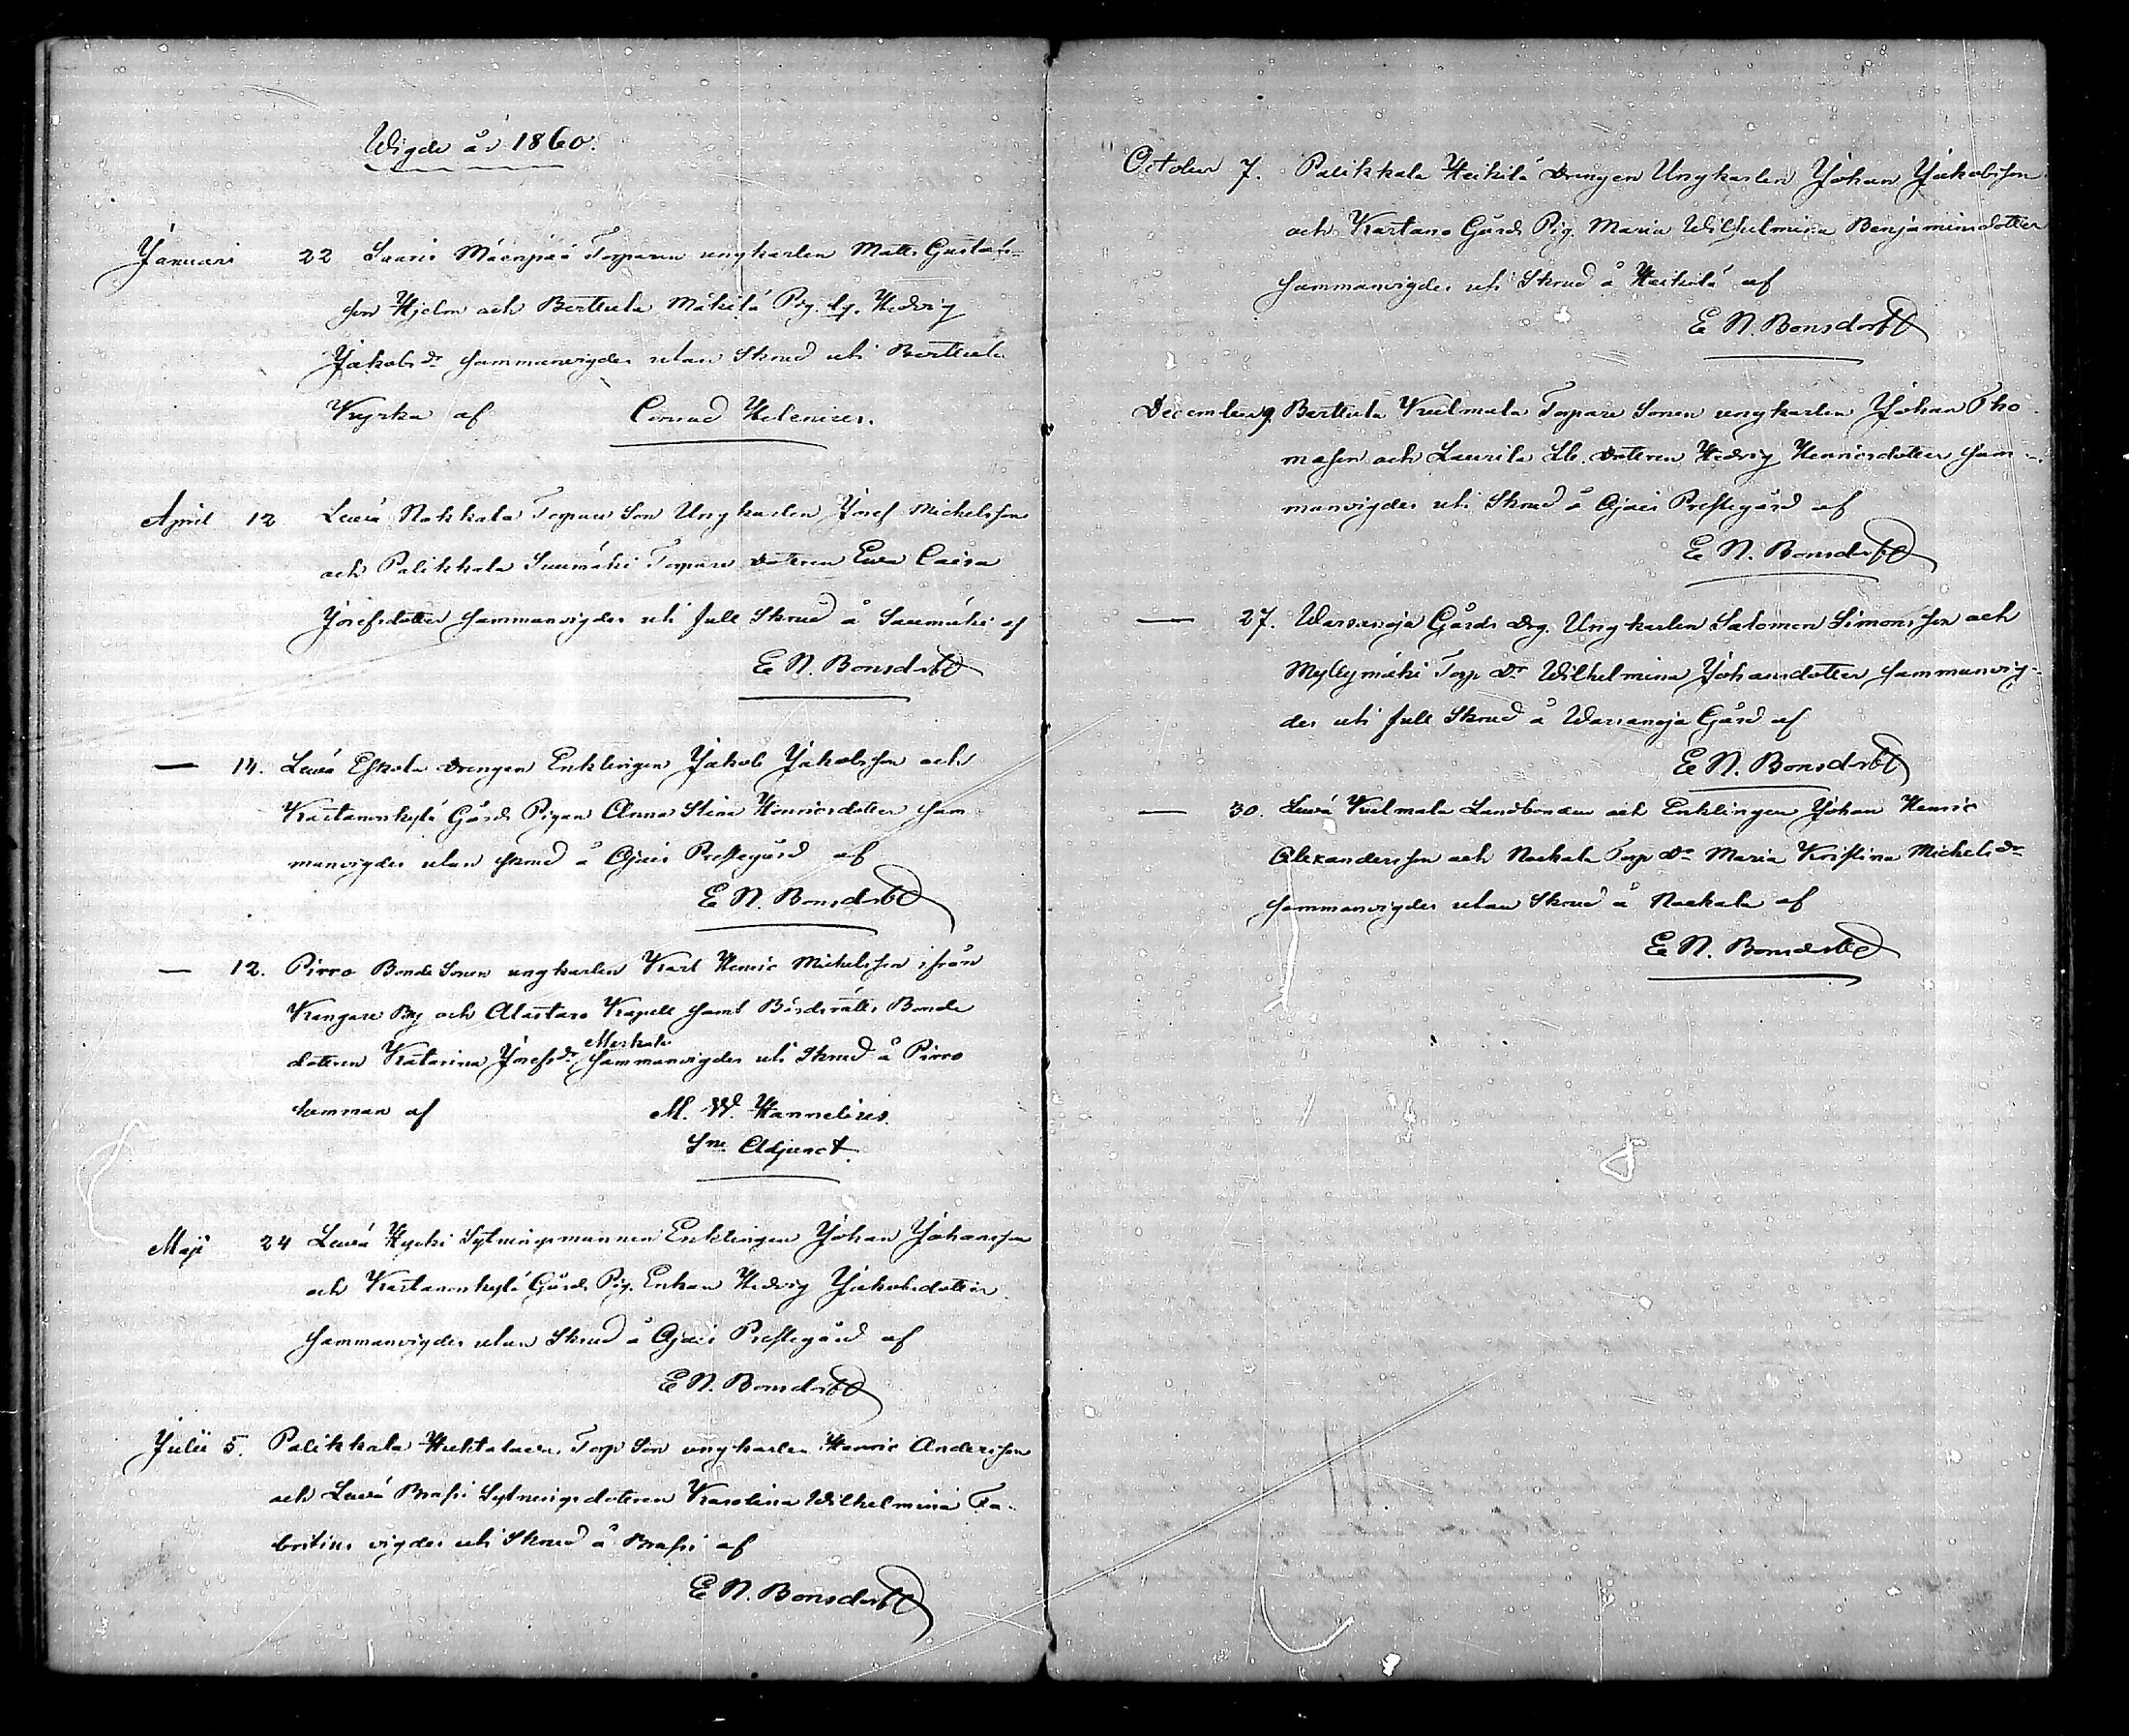 Wigde år 1860.
Januari 22 Saari Mäenpää Torparen ungkarlen Matts Gustafs-
son Hjelm och Berttula Mäkilä Pig. Hedvig
Jakobsdr sammanvigdes utan Skrud uti Berttula
Kyrka af Conrad Helenius.
April 12 Leuvä Nokkala Torpare Son Ungkarlen Josef Michelsson
och Palikkala Suumäki Torpare dotteren Eva Caisa
Josefsdotter sammanvigdes uti full Skrud å Suumäki af
E N. Bonsdorff
— 14. Levä Eskola drengen Enklingen Jakob Jakobsson och
Kartanonkylä Gårds Pigan Anna Stina Henricsdotter sam
manvigdes utan skrud å Ojais Prestegård af
E N. Bonsdorff
— 12. Pirro Bonde Sonen ungkarlen Karl Henric Michelsson ifrån
Kangare By och Alastaro Kapell samt Bördsrätts Bonde
dotteren Katarina Josefsdr Meskala sammanvigdes uti Skrud å Pirro
hemman af M. W. Hannelius.
Sne Adjunct.
Maji 24 Levä Hyrki Sytningsmannen Enklingen Johan Johansson
och Kartanonkylä Gårds Pig. Enkan Hedvig Jakobsdotter
sammanvigdes utan Skrud å Ojais Prestegård af
E N. Bonsdorff
Julii 5. Palikkala Huhtalava Torp Son ungkarlen Henric Andersson
och Levä Brasi Sytningsdotteren Karolina Wilhelmina Fa-
britius vigdes uti Skrud å Brasi af
E N. Bonsdorff
October 7. Palikkala Heikilä drengen Ungkarlen Johan Jakobsson
och Kartano Gårds Pig. Maria Wilhelmina Benjaminsdotter
sammanvigdes uti Skrud å Heikilä af
E N. Bonsdorff
December 9. Berttula Kulmala Torpare Sonen ungkarlen Johan Tho
masson och Laurila Lb. dotteren Hedvig Henricsdotter sam-
manvigdes uti Skrud å Ojais Prestegård af
E N. Bonsdorff
— 27. Warsanoja Gårds drg. Ungkarlen Salomon Simonsson och
Myllymäki Torp dr Wilhelmina Johansdotter sammanvig-
des uti full Skrud å Warsanoja Gård af
E N. Bonsdorff
— 30. Levä Kulmala Landbonden och Enklingen Johan Henric
Alexandersson och Nockala Torp dr Maria Kristina Michelsdr
sammanvigdes utan Skrud å Nockala af
E N. Bonsdorff